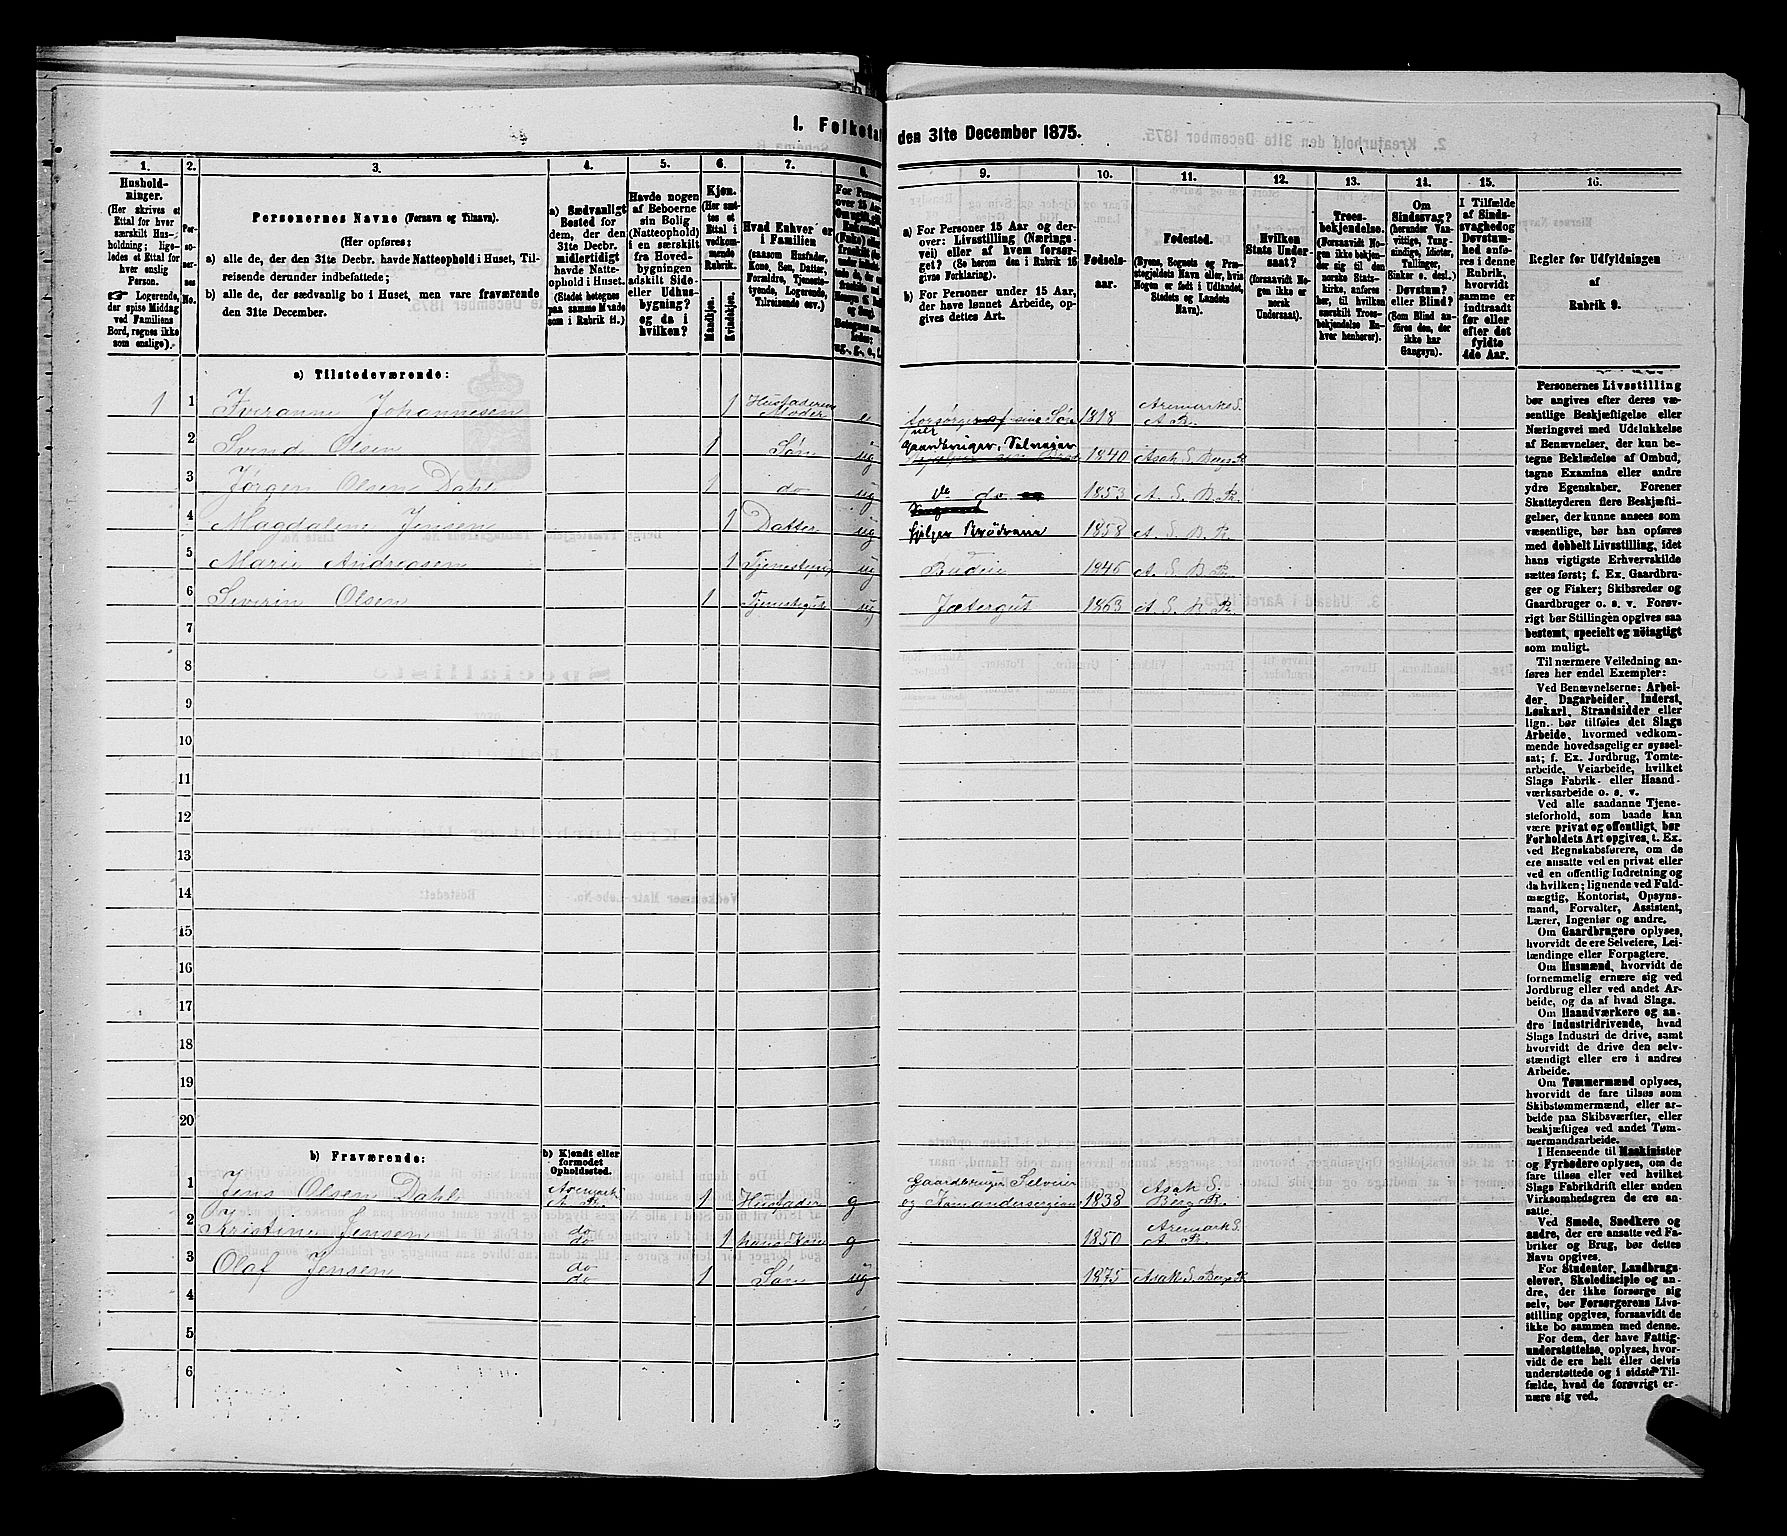 I. Folketal
den 31te December 1875.
1.
Hushold-
ninger.
(Her skrives et
Ettal for hver
særskilt Hus-
holdning; lige-
ledes et Ettal for
hver enslig
Person.
☞ Logerende,
der spise Middag
ved Familiens
Bord, regnes ikke
som enslige).
2.
Per-
so-
ner-
nes
No.
3.
Personernes Navne (Fornavn og Tilnavn).
(Her opføres:
a) alle de, der den 31te Decbr. havde Natteophold i Huset, Til-
reisende derunder indbefattede;
b) alle de, der sædvanlig bo i Huset, men vare fraværende
den 31te December.
4.
a) Sædvanligt
Bosted for
dem, der den
31te Decbr.
midlertidigt
havde Natte-
ophold i Huset.
(Stedet betegnes
paa samme Maade
som i Rubrik 11.)
5.
Havde nogen
af Beboerne
sin Bolig
(Natteophold)
i en særskilt
fra Hoved-
bygningen
adskilt Side-
eller Udhus-
bygning?
og da i
hvilken?
6.
Kjøn.
(Her sæt-
tes et
Ettal i
vedkom-
mende
Rubrik.
Mandkjøn.
Kvindekjøn.
7.
Hvad Enhver er
i Familien
(saasom Husfader,
Kone, Søn, Datter,
Forældre, Tjeneste-
tyende, Logerende,
Tilreisende osv.)
8.
For Personer
over 15 Aar:
ug., g., e., f.
9.
a) For Personer 15 Aar og der-
over: Livsstilling (Nærings-
vei) eller af hvem forsør-
get? (Se herom den i Rubrik 16
givne Forklaring).
b) For Personer under 15 Aar,
der have lønnet Arbeide, op-
gives dettes Art.
10.
Fødsels-
aar.
11.
Fødested.
(Byens, Sognets og Præ-
stegjeldets Navn eller, hvis
Nogen er født i Udlandet,
Stedets og Landets
Navn).
12.
Hvilken
Stats Under-
saat?
(forsaavidt No-
gen ikke er
norsk
Undersaat).
13.
Troes-
bekjendelse.
(Forsaavidt No-
gen ikke bekjen-
der sig til den
norske Stats-
kirke, anføres
her, til hvilken
særskilt Troes-
bekjendelse En-
hver henhører).
14.
Om
Sindssvag?
(herunder Van-
vittige, Tung-
sindige, Idioter,
Tullinger,
Sinker o. desl.)
Døvstum?
eller Blind?
(Som Blind an-
føres den, der
ikke har
Gangsyn).
15.
I Tilfælde
af Sinds-
svaghed og
Døvstum-
hed anfø-
res i denne
Rubrik,
hvorvidt
samme er
indtraadt
før eller
efter det
fyldte
4de Aar.
16.
Regler før Udfyldningen
af
Rubrik 9.
a) Tilstedeværende:
1 1 Iveranne Johannesen 1 Husfaderens Moder e forsørges af sine Søn 1818 Aremarks S. A. P.
2 Svend Olsen 1 Søn ug Gaardbruger, Selveier 1840 Asak S. Bergs P.
3 Jørgen Olsen Dahl 1 do ug do 1853 A. S. B. P.
4 Magdalene Jensen 1 Datter ug hjelper Brødrene 1858 A. S. B. P.
5 Marie Andreasen 1 Tjenestepige ug Budeie 1846 A. S. B. P.
6 Severin Olsen 1 Tjenestegut ug Jætergut 1863 A. S. B. P.
7
8
9
10
11
12
13
14
15
16
17
18
19
20
b) Fraværende:
b) Kjendt eller
formodet
Opholdssted.
1 Jens Olsen Dahl Aremark A. P. 1 Husfader g Gaardbruger Selveier og Komandersergiant 1838 Asak S. Berg P.
2 Kristine Jensen do do 1 hans Kone g 1850 Aremark S. A. P.
3 Olaf Jensen do do 1 Søn ug 1875 Asak S. Bergs P.
4
5
6
Personernes Livsstilling
bør angives efter deres væ-
sentlige Beskjæftigelse eller
Næringsvei med Udelukkelse
af Benævnelser, der kun be-
tegne Beklædelse af Ombud,
tagne Examina eller andre
ydre Egenskaber. Forener
Skatteyderen flere Beskjæfti-
gelser, der kunne ansees som
væsentlige, bør han opføres
med dobbelt Livsstilling, idet
hans vigtigste Erhvervskilde
sættes først; f. Ex. Gaardbru-
ger og Fisker; Skibsreder og
Gaardbruger o. s. v. Forøv-
rigt bør Stillingen opgives saa
bestemt, specielt og nöiagtigt
som muligt.
Til nærmere Veiledning an-
føres her endel Exempler:
Ved Benævnelserne: Arbei-
der, Dagarbeider, Inderst,
Løskarl, Strandsidder eller
lign. bør tilføies det Slags
Arbeide, hvormed vedkom-
mende hovedsagelig er syssel-
sat; f. Ex. Jordbrug, Tomte-
arbeide, Veiarbeide, hvilket
Slags Fabrik- eller Haand-
værksarbeide o. s. v.
Ved alle saadanne Tjene-
steforhold, som baade kan
være privat og offentligt, bør
Forholdets Art opgives, t. Ex.
ved Regnskabsførere, om de
ere ansatte ved en privat eller
ved en offentlig Indretning og
da hvilken; lignende ved Fuld-
mægtig, Kontorist, Opsyns-
mand, Forvalter, Assistent,
Lærer, Ingeniør og andre.
Om Gaardbrugere oplyses,
hvorvidt de ere Selveiere, Lei-
lændinge eller Forpagtere.
Om Husmænd, hvorvidt de
fornemmelig ernære sig ved
Jordbrug eller ved andet Ar-
beide, og da af hvad Slags.
Om Haandværkere og an-
dre Industridrivende, hvad
Slags Industri de drive, samt
hvorvidt de drive den selv-
stændigt eller ere i andres
Arbeide.
Om Tømmermænd oplyses,
hvorvidt de fare tilsøs som
Skibstømmermænd, eller ar-
beide paa Skibsværfter, eller
beskjæftiges ved andet Tøm-
mermandsarbeide.
I Henseende til Maskinister
og Fyrbødere oplyses, om de
fare tilsøs eller ved hvilket
Slags Fabrikdrift eller anden
Virksomhedsgren de ere an-
satte.
Ved Smede, Snedkere og
andre, der ere ansatte ved Fa-
briker og Brug, bør dettes
Navn opgives.
For Studenter, Landbrugs-
elever, Skoledisciple og an-
dre, der ikke forsørge sig
selv, bør Forsørgerens Livs-
stilling opgives, forsaavidt de
ikke bo sammen med denne.
For dem, der have Fattig-
understøttelse, oplyses, hvor-
vidt de ere helt eller delvis
understøttede og i sidste Til-
fælde, hvad de forøvrigt er-
nære sig ved.